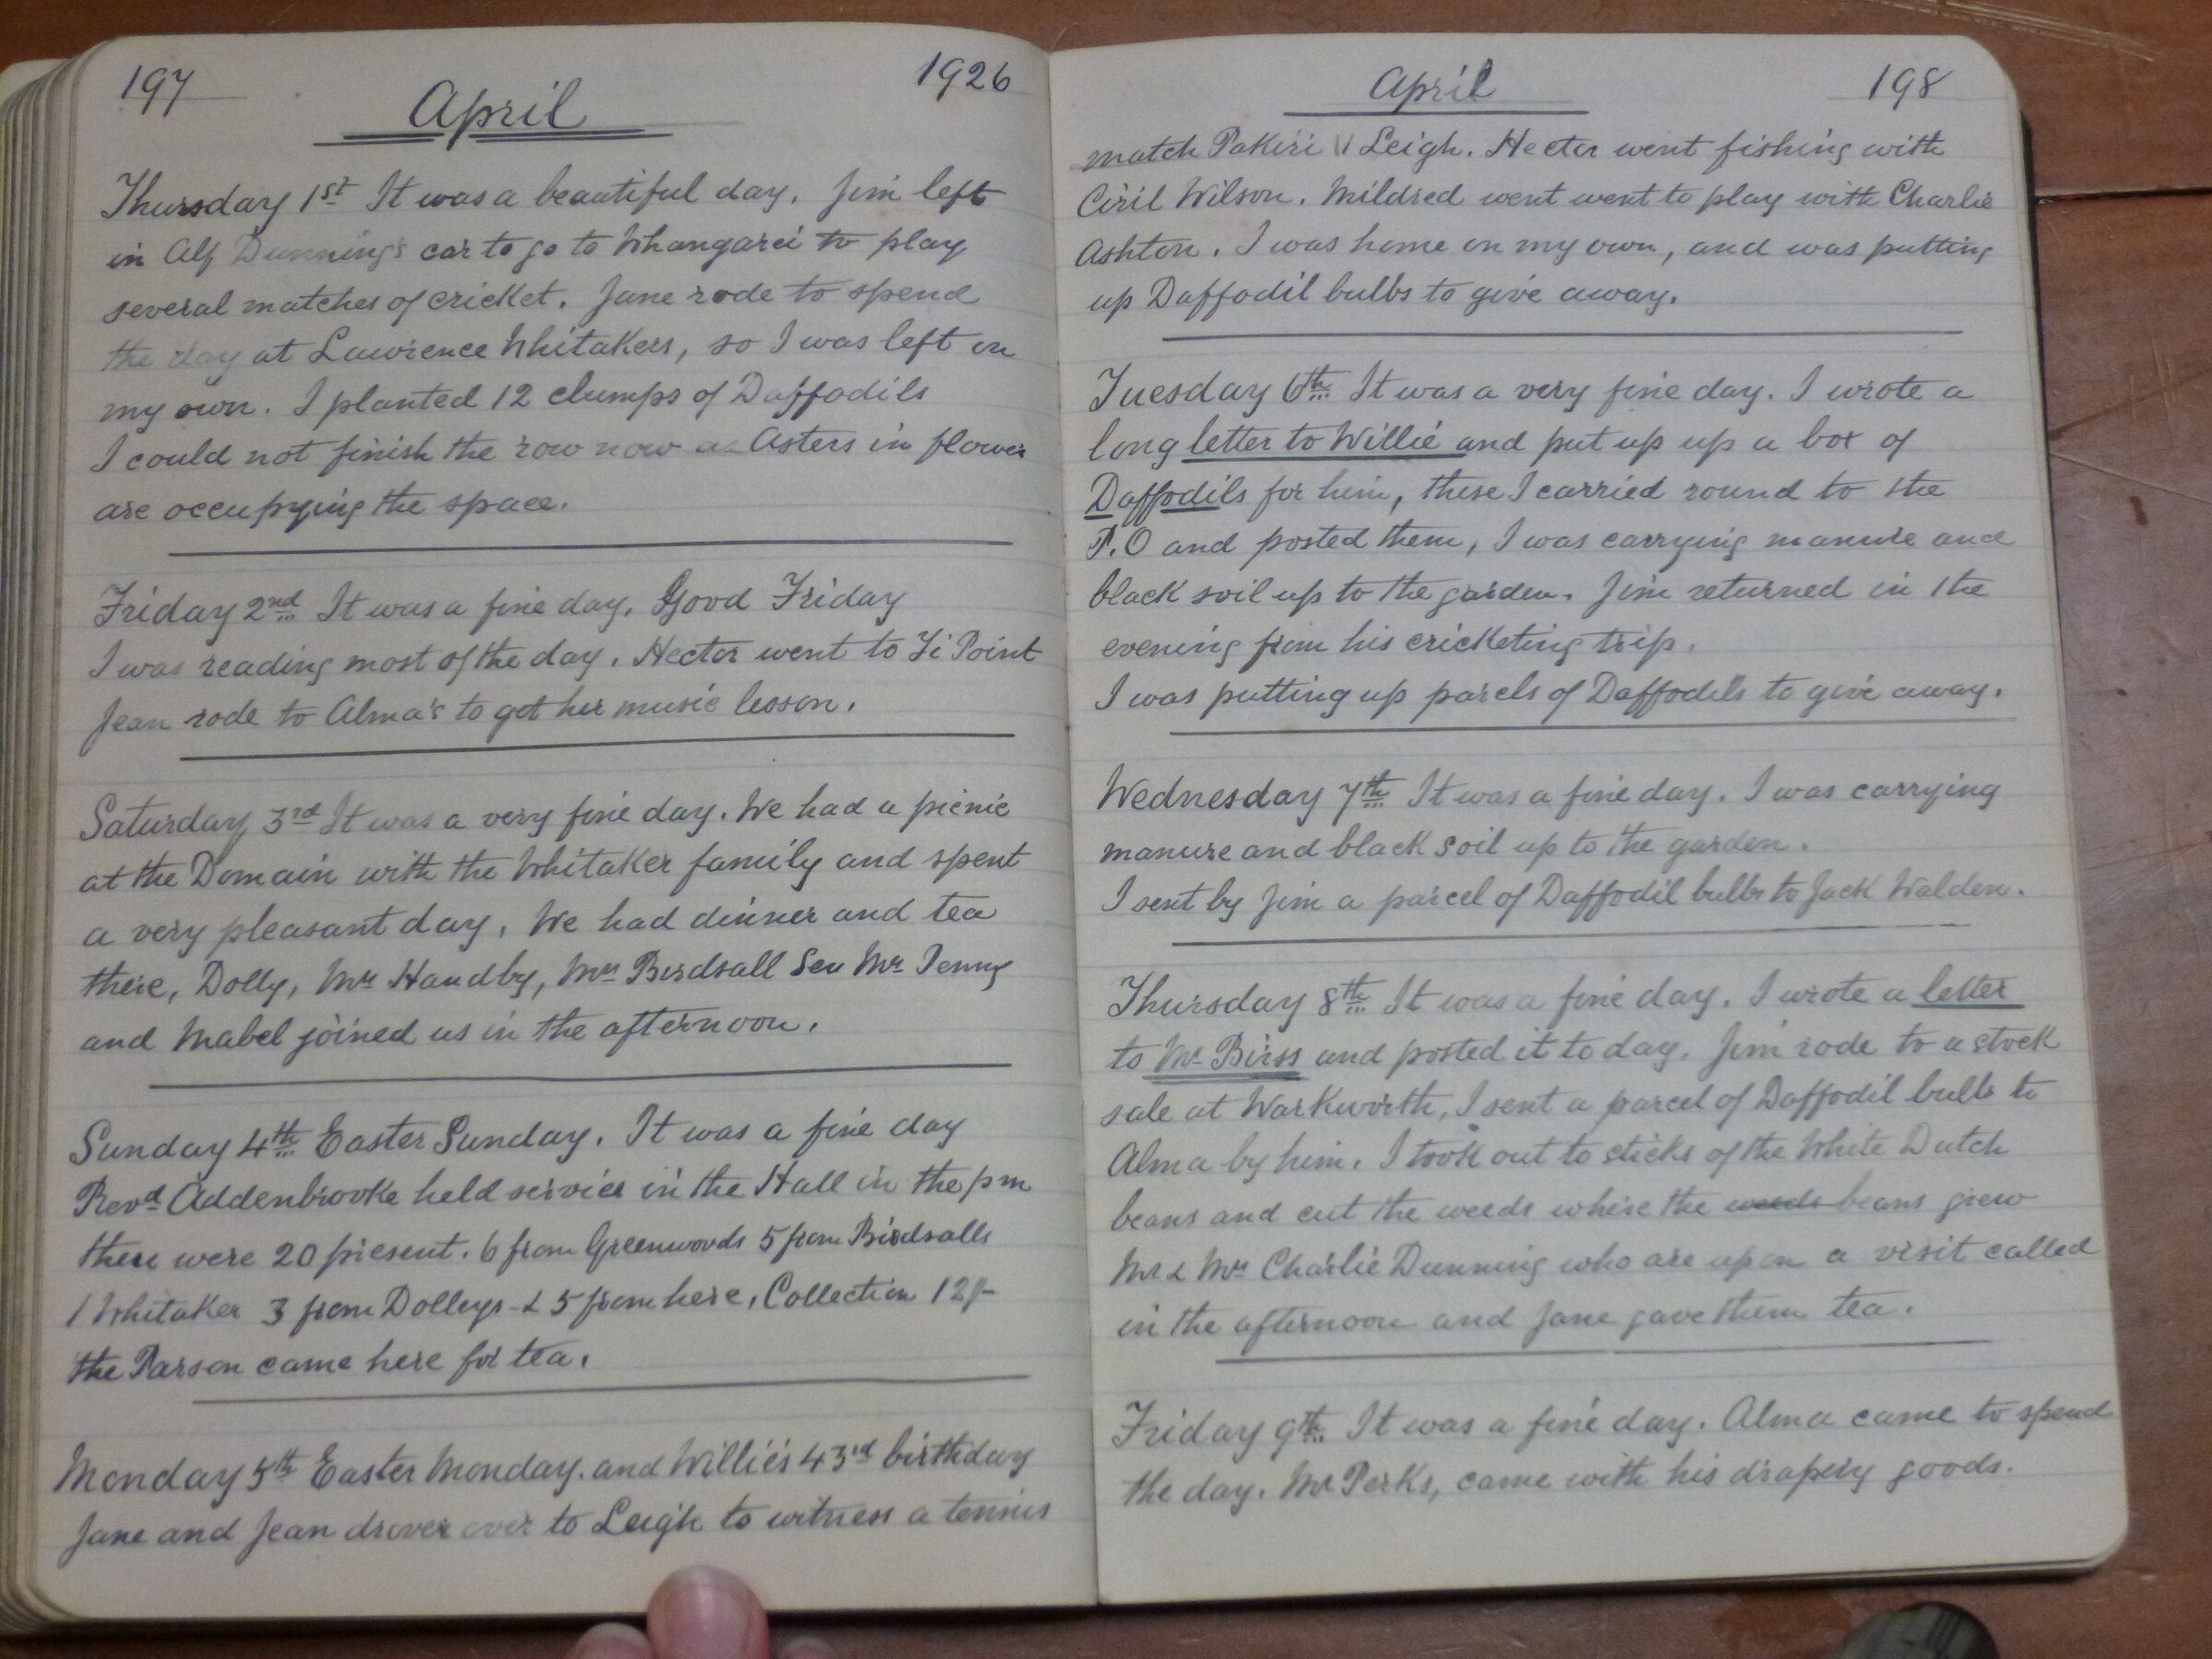 197
1926
April
Thursday 1st It was a beautiful day. Jim left
in Alf Dunning's car to go to Whangarei to play
several matches of cricket. Jane rode to spend
the day at Lawrence Whitakers, so I was left on
my own. I planted 12 clumps of Daffodils
I could not finish the row now as Asters in flower
are occupying the space.
Friday 2nd It was a fine day. Good Friday
I was reading most of the day. Hector went to Ti Point
Jean rode to Alma's to get her music lesson.
Saturday 3rd It was a very fine day. We had a picnic
at the Domain with the Whitaker family and spent
a very pleasant day. We had dinner and tea
there, Dolly, Mr Handby, Mrs Birdsall Sen Mr Penny
and Mabel joined us in the afternoon.
Sunday 4th Easter Sunday. It was a fine day
Revd Addenbrooke held service in the Hall in the pm
there were 20 present. 6 from Greenwoods 5 from Birdsalls
1 Whitaker 3 from Dollys & 5 from here, Collection 12/-
the Parson came here for tea.
Monday 5th Easter Monday. and Willie's 43rd birthday
Jane and Jean drover over to Leigh to witness a tennis
April
198
match Pakiri V Leigh. Hector went fishing with
Ciril Wilson. Mildred went went to play with Charlie
Ashton. I was home on my own, and was putting
up Daffodil bulbs to give away.
Tuesday 6th It was a very fine day. I wrote a
long letter to Willie and put up up a box of
Daffodils for him, these I carried round to the
P.O and posted them, I was carrying manure and
black soil up to the garden. Jim returned in the
evening from his cricketing trip.
I was putting up parcels of Daffodils to give away.
Wednesday 7th It was a fine day. I was carrying
manure and black soil up to the garden.
I sent by Jim a parcel of Daffodil bulbs to Jack Walden.
Thursday 8th It was a fine day. I wrote a letter
to Mr Birss and posted it to day. Jim rode to a stock
sale at Warkworth, I sent a parcel of Daffodil bulbs to
Alma by him. I took out to sticks of the White Dutch
beans and cut the weeds where the weeds beans grew
Mr & Mrs Charlie Dunning who are up on a visit called
in the afternoon and Jane gave them tea.
Friday 9th. It was a fine day. Alma came to spend
the day. Mr Perks, came with his drapery goods.